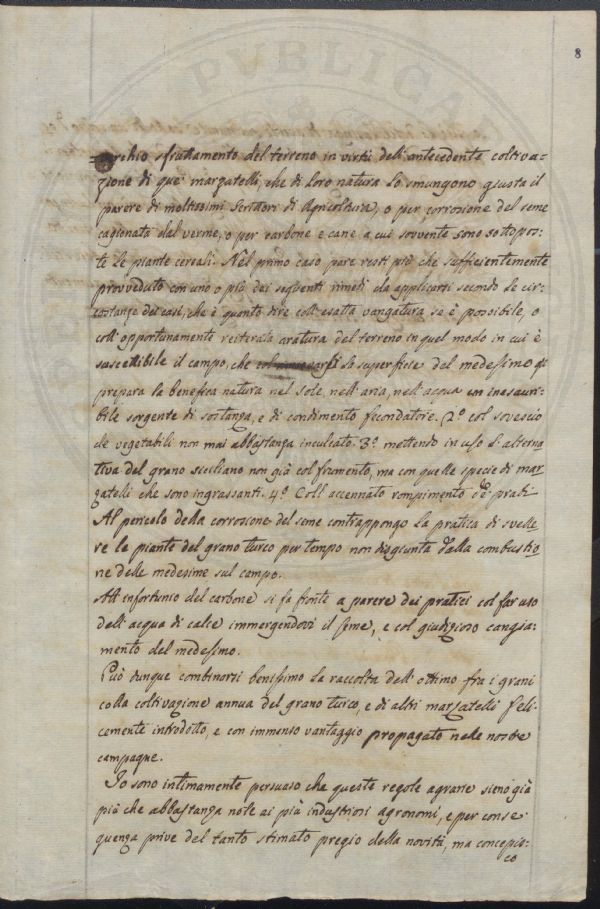 8
PUBLICA
soverchio sfruttamento del terreno in virtù dell'antecedente coltiva=
zione di que' marzatelli, che di loro natura lo smungono giusta il
parere di moltissimi scrittori di Agricoltura, o per corrosione del seme
cagionata dal verme, o per carbone e cane a cui sovvente sono sottopos=
te le piante cereali. Nel primo caso pare resti più che sufficientemente
provveduto con uno o più dei seguenti rimedj da applicarsi secondo le cir=
costanze dei casi, che è quanto dire coll'esatta vangatura se è possibile, o
coll'opportunamente reiterata aratura del terreno in quel modo in cui è
suscettibile il campo, che la superficie del medesimo
prepara la benefica natura nel sole, nell'aria, nell'acqua un inesauri=
bile sorgente di sostanza, e di condimento fecondatore. 2.º col sovescio
de vegetabili non mai abbastanza inculcato. 3.º mettendo in uso l'alterna
tiva del grano siciliano non già col frumento, ma con quelle specie di mar
zatelli che sono ingrassanti. 4.º Coll'accennato rompimento de' prati
Al pericolo della corrosione del seme contrappongo la pratica di svelle
re le piante del grano turco per tempo non disgiunta dalla combustio
ne delle medesime sul campo.
All'infortunio del carbone si fa fronte a parere dei pratici col far uso
dell'acqua di calce immergendovi il seme, e col giudizioso cangia=
mento del medesimo.
Può dunque combinarsi benissimo la raccolta dell'ottimo fra i grani
colla coltivazione annua del grano turco, e di altri marzatelli feli=
cemente introdotto, e con immenso vantaggio propagato nelle nostre
campagne.
Io sono intimamente persuaso che queste regole agrarie sieno già
più che abbastanza note ai più industriosi agronomi, e per conse
guenza prive del tanto stimato pregio della novità, ma concepis=
co